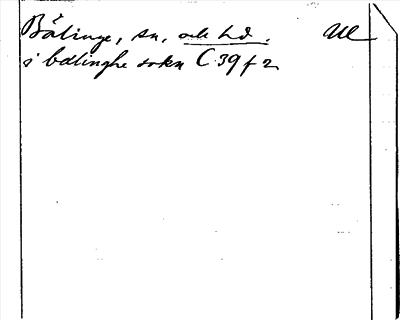 Bälinge, sn, och hd. Ul
i bælinghe sokn C 39 f 2